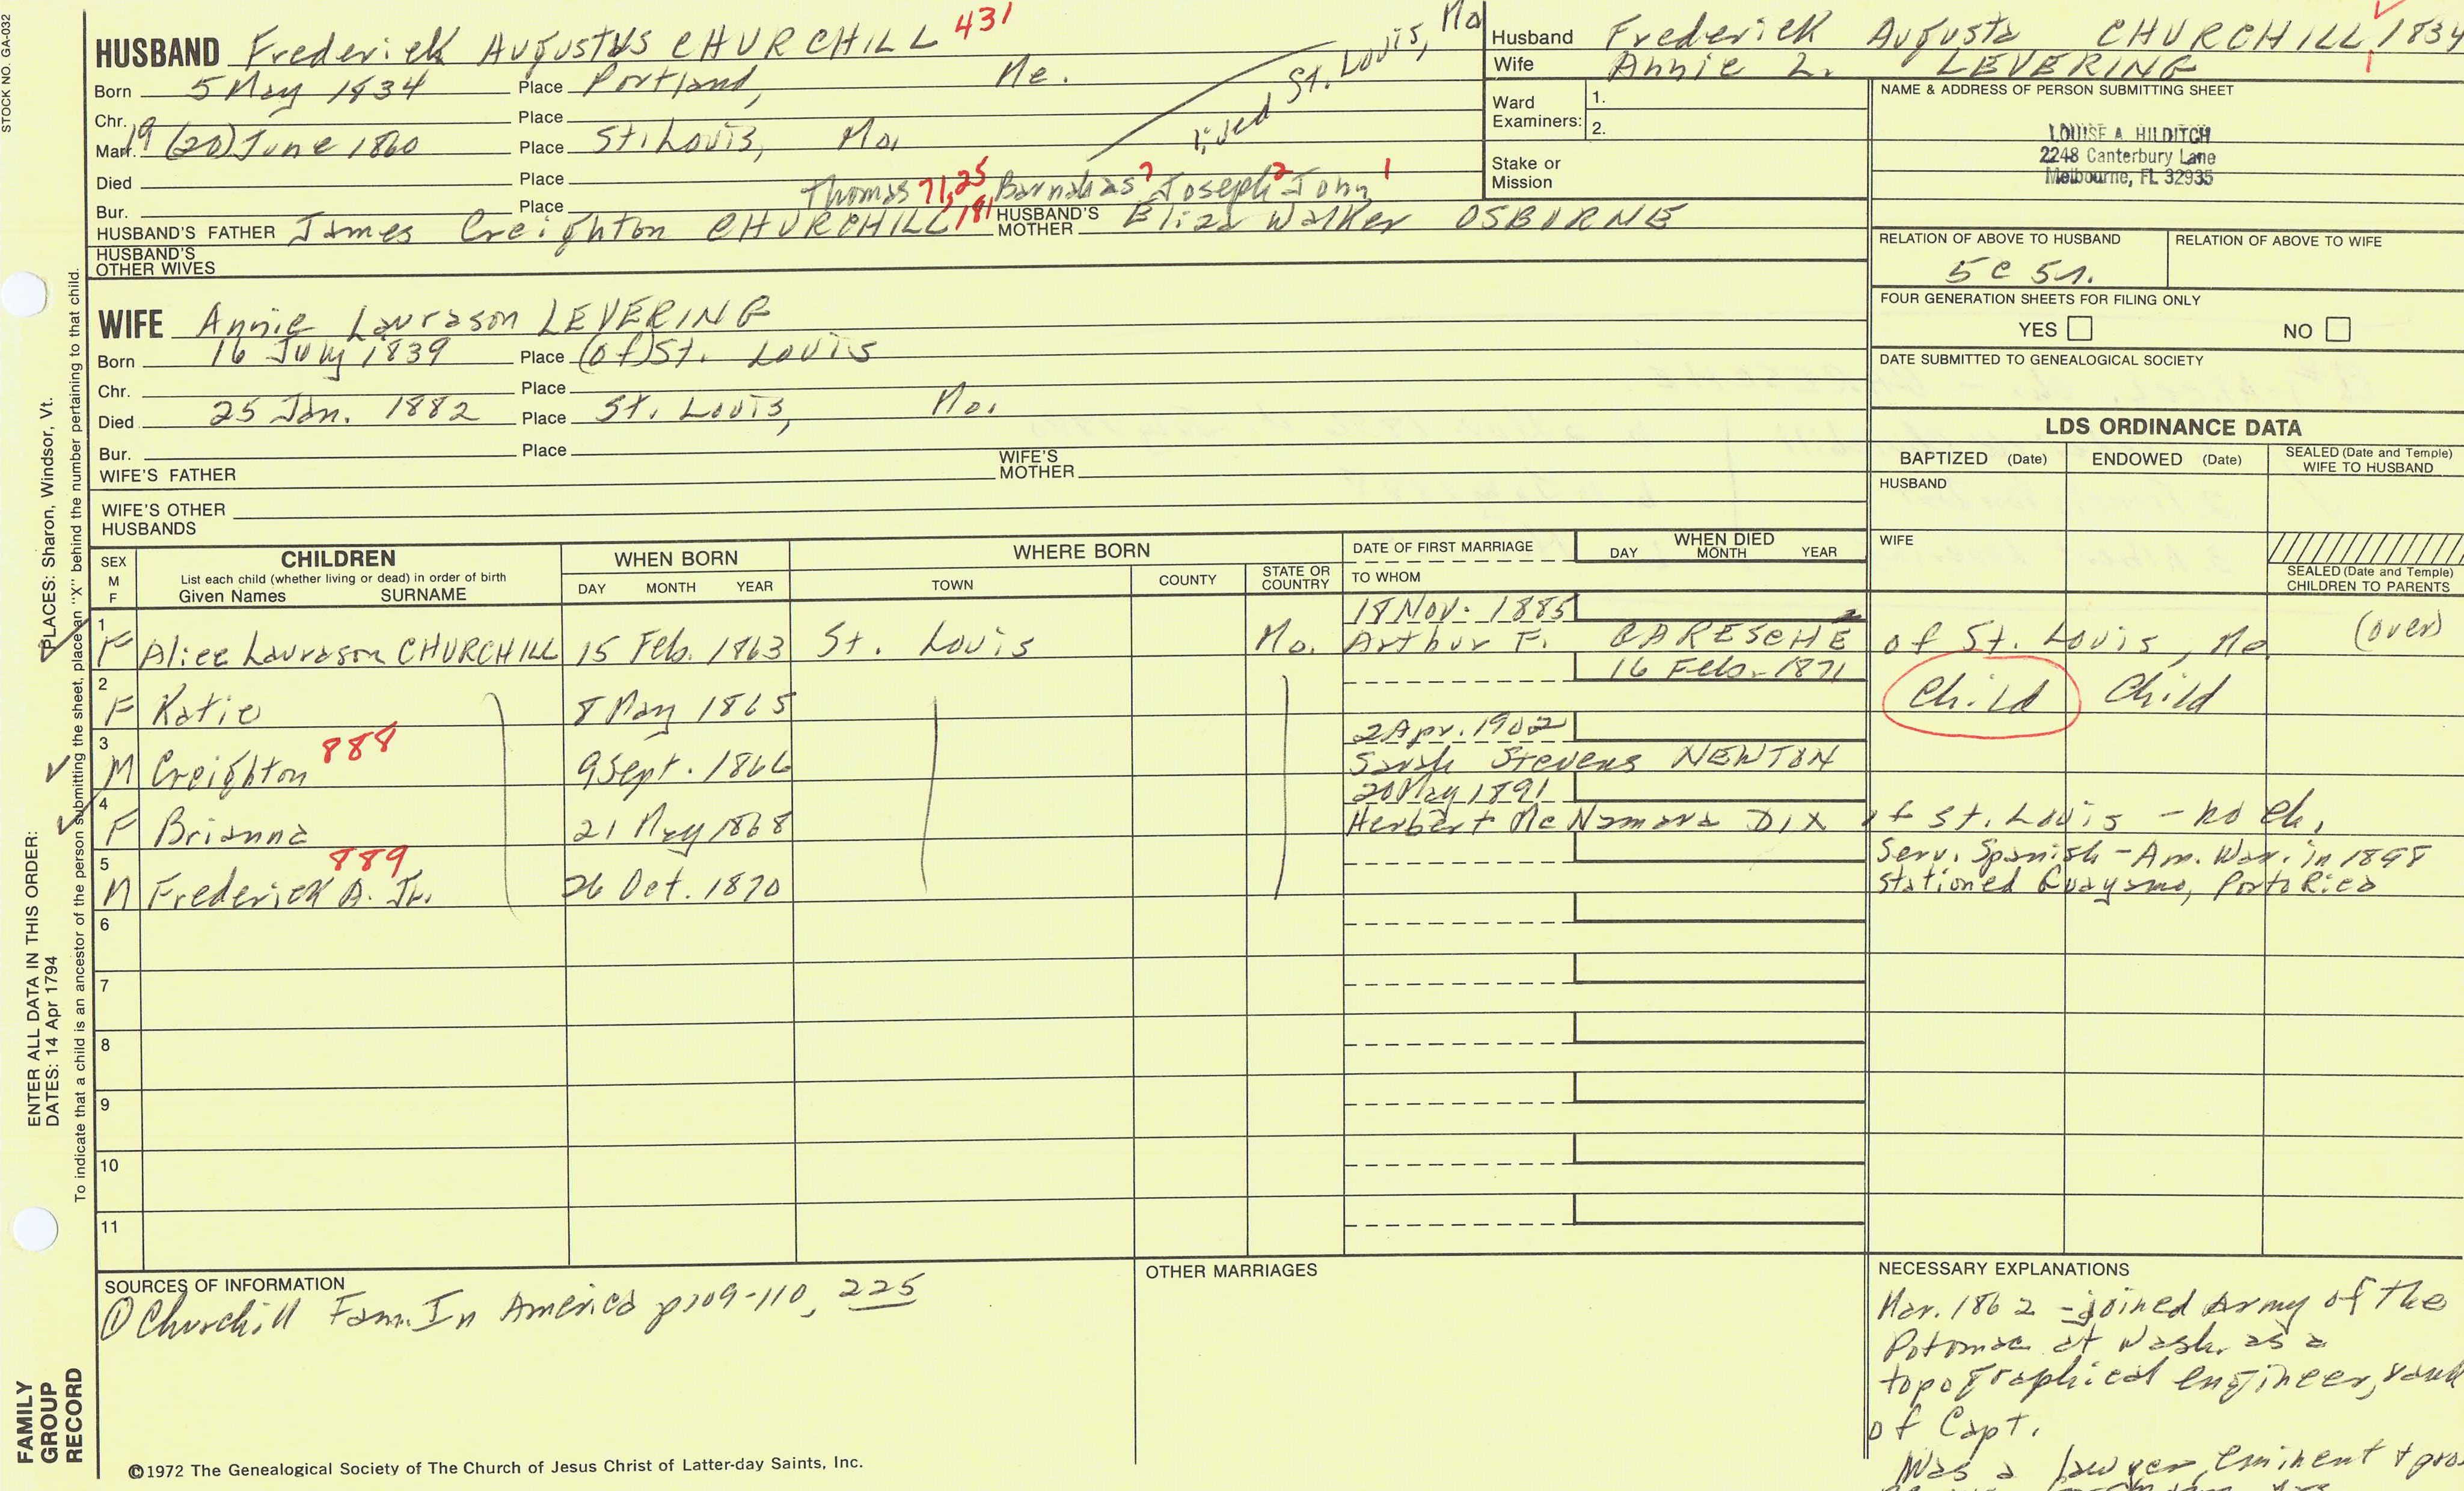 STOCK NO. GA-032
HUSBAND Frederick Augustus CHURCHILL 431
Born 5 May 1834 Place Portland, Me.
lived St. Louis, Mo
Chr. Place
Marr. 19 (20) June 1860 Place St. Louis, Mo.
Died Place
Thomas 71,25 Barnabas 7 Joseph 2 John 1
Bur. Place
HUSBAND'S FATHER James Creighton CHURCHILL 181 HUSBAND'S MOTHER Eliza Walker OSBORNE
HUSBAND'S OTHER WIVES
Husband Frederick Augusta CHURCHILL, 1834
Wife Annie L. LEVERING
Ward Examiners: 1.
2.
Stake or Mission
NAME & ADDRESS OF PERSON SUBMITTING SHEET
LOUISE A. HILDITCH
2248 Canterbury Lane
Melbourne, FL 32935
RELATION OF ABOVE TO HUSBAND RELATION OF ABOVE TO WIFE
5 C 5 r.
FOUR GENERATION SHEETS FOR FILING ONLY
YES NO
DATE SUBMITTED TO GENEALOGICAL SOCIETY
WIFE Annie Laurason LEVERING
Born 16 July 1839 Place (of) St. Louis
Chr. Place
Died 25 Jan. 1882 Place St. Louis, Mo.
Bur. Place
WIFE'S FATHER WIFE'S MOTHER
WIFE'S OTHER HUSBANDS
LDS ORDINANCE DATA
BAPTIZED (Date) ENDOWED (Date) SEALED (Date and Temple) WIFE TO HUSBAND
HUSBAND
WIFE
SEALED (Date and Temple) CHILDREN TO PARENTS
SEX M F CHILDREN WHEN BORN WHERE BORN DATE OF FIRST MARRIAGE WHEN DIED
List each child (whether living or dead) in order of birth
Given Names SURNAME DAY MONTH YEAR TOWN COUNTY STATE OR COUNTRY TO WHOM DAY MONTH YEAR
18 Nov. 1885
1 F Alice Laurason CHURCHILL 15 Feb. 1863 St. Louis Mo. Arthur F. BARESCHE of St. Louis, Mo. (over)
16 Feb. 1871
2 F Katie 8 May 1865 Child Child
2 Apr. 1902
3 M Creighton 888 9 Sept. 1866 Sarah Stevens NEWTON
20 May 1891
4 F Brianna 21 May 1868 Herbert McNamara DIX of St. Louis - no ch.
5 M Frederick A. Jr. 889 26 Oct. 1870 Serv. Spanish-Am. War. in 1898
stationed Guayamo, Porto Rico
6
7
8
9
10
11
SOURCES OF INFORMATION
① Churchill Fam. In America p109-110, 225
OTHER MARRIAGES
NECESSARY EXPLANATIONS
Mar. 1862 - joined Army of the
Potomac at Wash. as a
topographical engineer, rank
of Capt.
Was a lawyer, eminent +
©1972 The Genealogical Society of The Church of Jesus Christ of Latter-day Saints, Inc.
FAMILY GROUP RECORD
ENTER ALL DATA IN THIS ORDER:
DATES: 14 Apr 1794
PLACES: Sharon, Windsor, Vt.
To indicate that a child is an ancestor of the person submitting the sheet, place an "X" behind the number pertaining to that child.